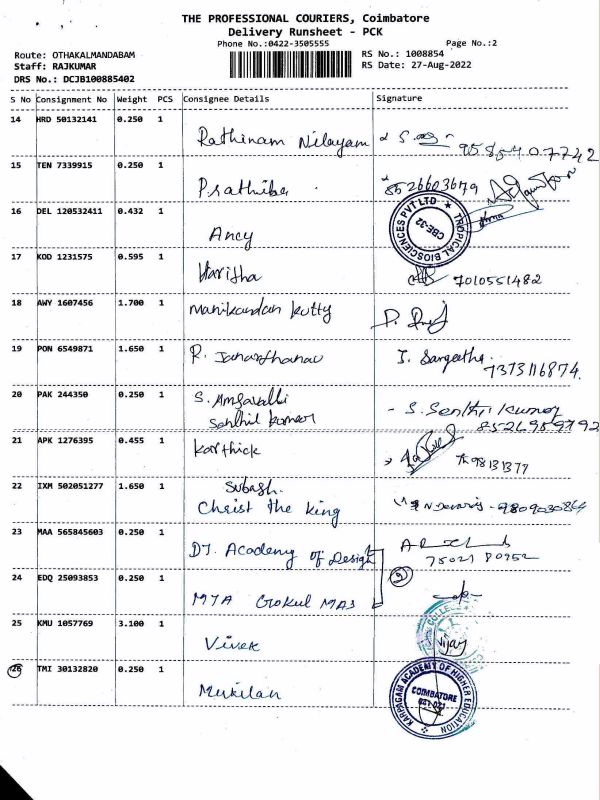 THE PROFESSIONAL COURIERS, Coimbatore
Delivery Runsheet - PCK
Phone No.:0422-3505555
Page No.:2
Route: OTHAKALMANDABAM
Staff: RAJKUMAR
DRS No.: DCJB100885402
RS No.: 1008854
RS Date: 27-Aug-2022
S No Consignment No Weight PCS Consignee Details Signature
14 HRD 50132141 0.250 1 Rathinam Nilayam 9585407742
15 TEN 7339915 0.250 1 Prathiba 8526603679
16 DEL 120532411 0.432 1 Ancy
TROPICAL BIOSCIENCES PVT LTD CBE-32
17 KOD 1231575 0.595 1 Haritha 7010551482
18 AWY 1607456 1.700 1 Manikandan kutty
19 PON 6549871 1.650 1 R. Janarthanan 7373116874.
20 PAK 244350 0.250 1 S.
Senthil kumar - S. Senthil Kumar
21 APK 1276395 0.455 1 Karthick
22 IXM 502051277 1.650 1 Subash.
Christ the king
23 MAA 565845603 0.250 1 DJ. Academy of Design
75021 80952
24 EDQ 25093853 0.250 1 Gokul 2
25 KMU 1057769 3.100 1 Vivek Vijay
26 TMI 30132820 0.250 1 Mukilan
KARPAGAM ACADEMY OF HIGHER EDUCATION COIMBATORE 641 021